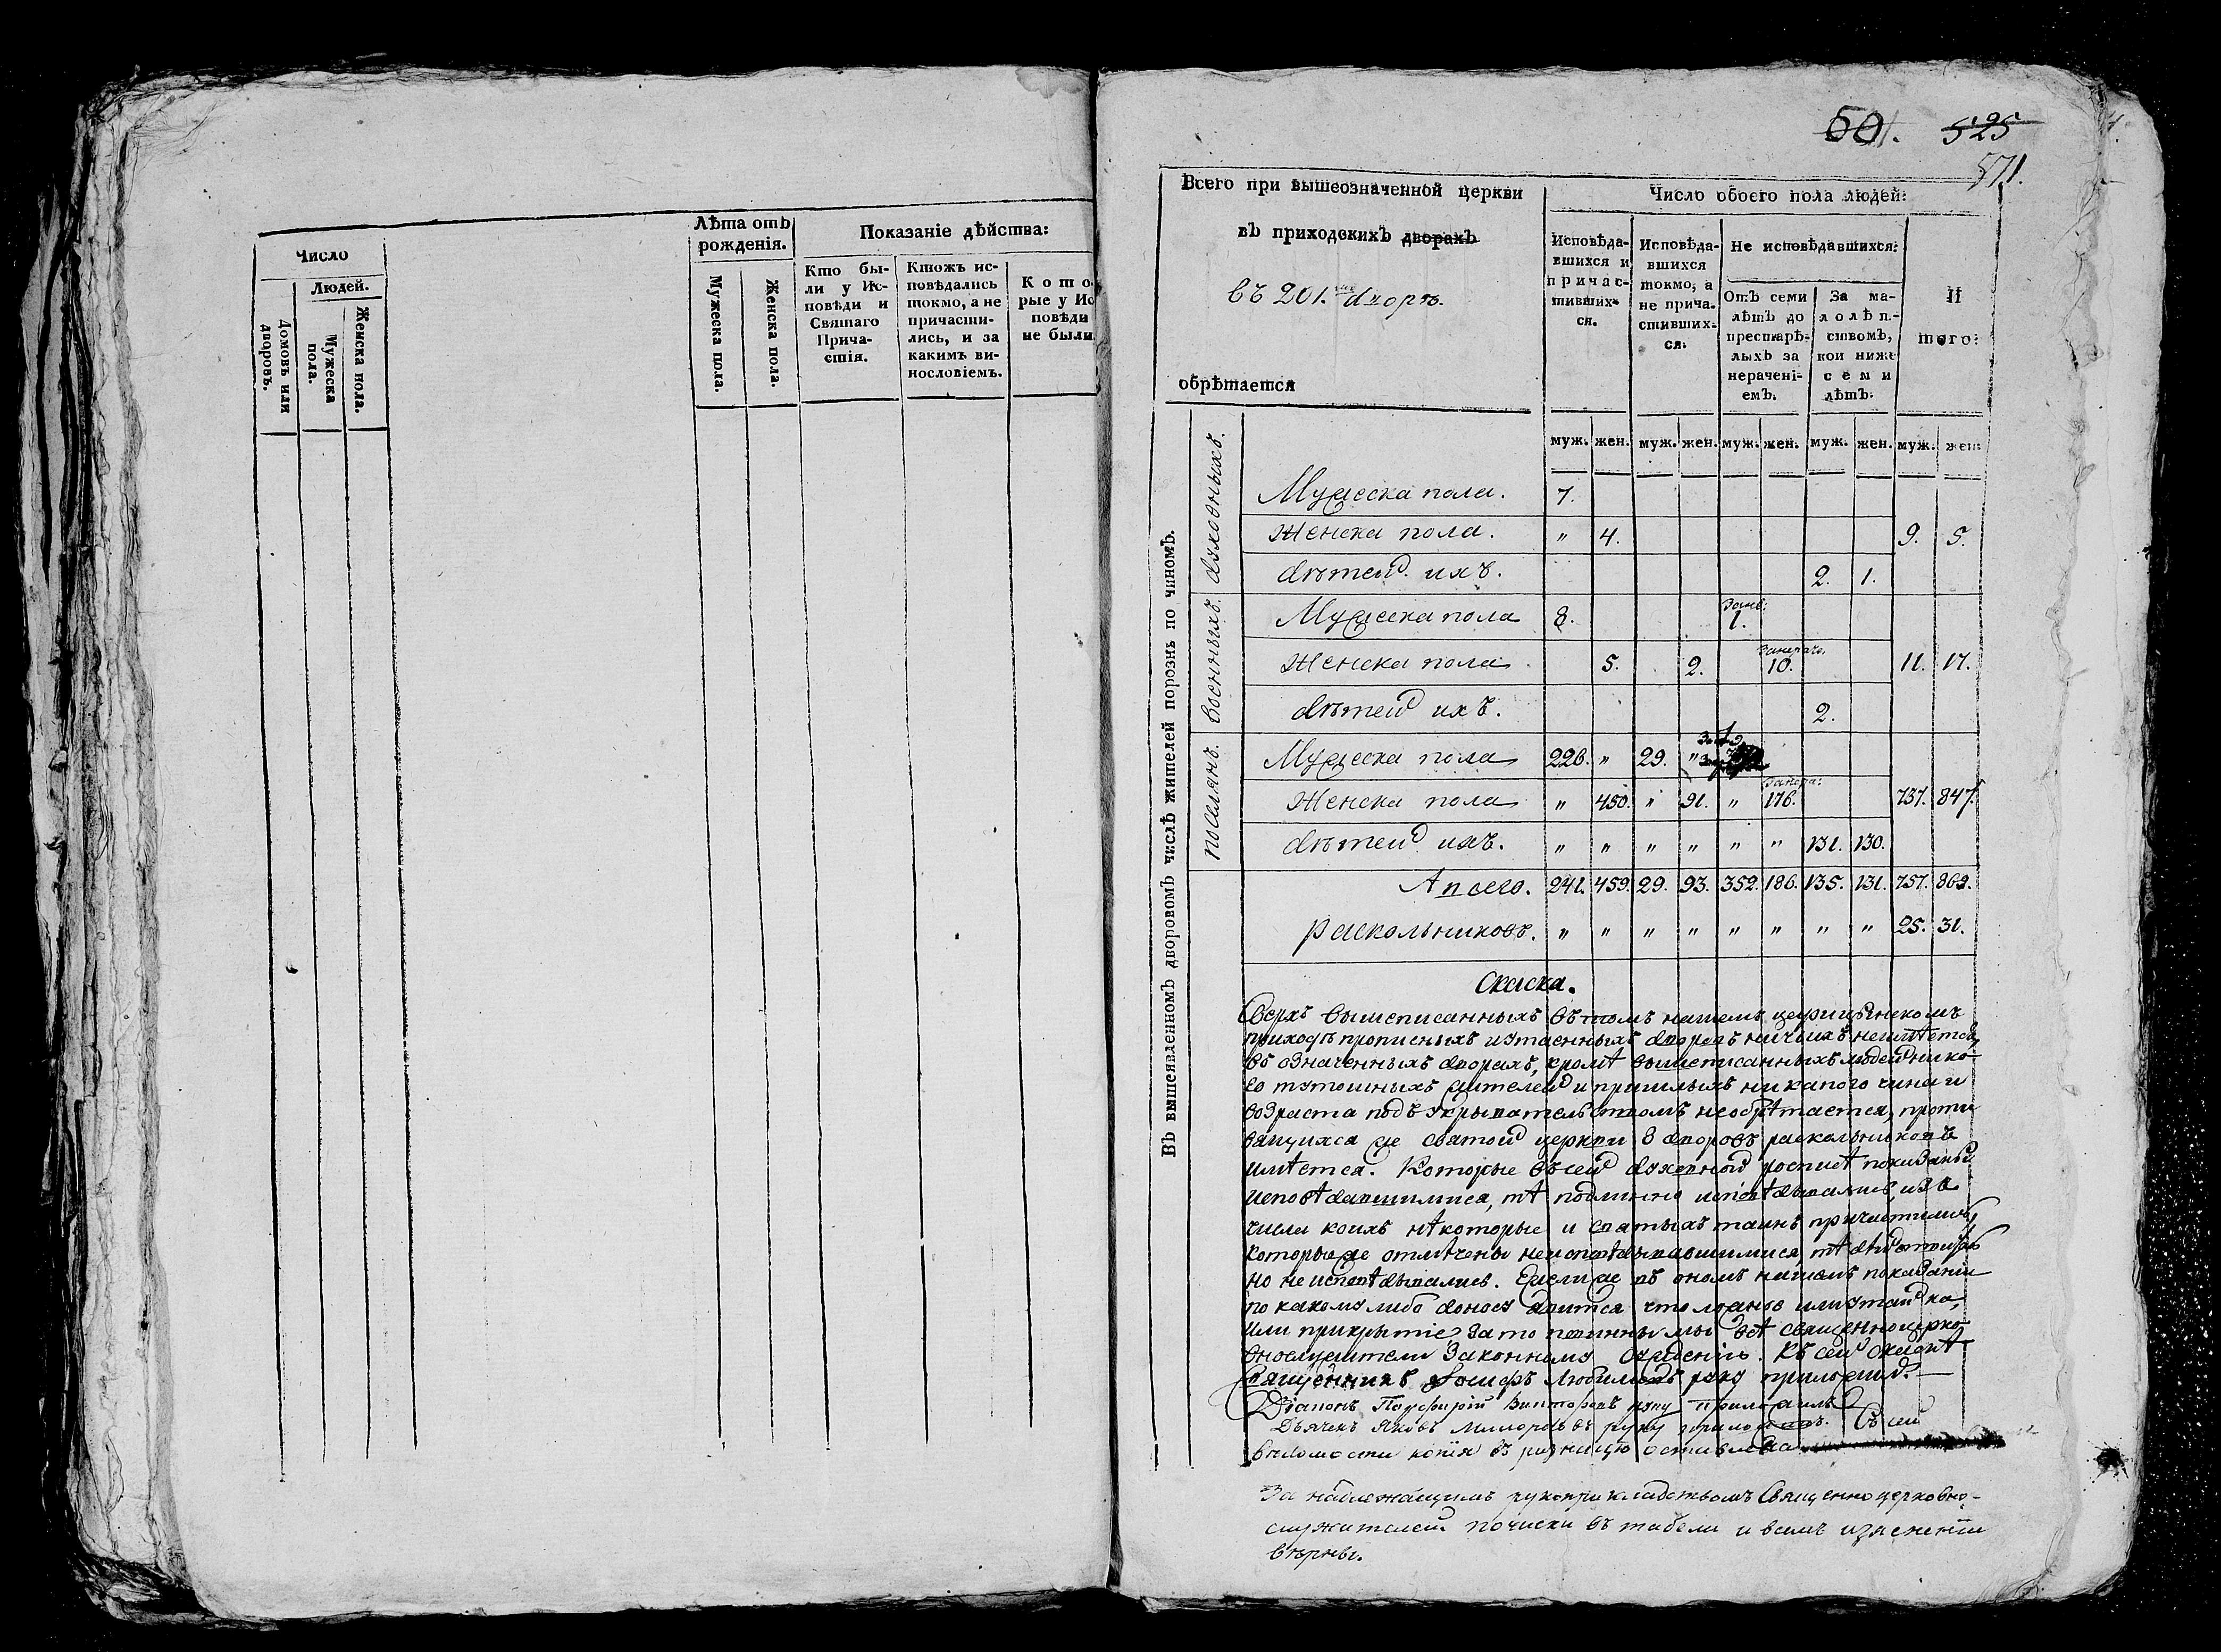 Число
Людей.
Домовъ или дворовъ.
Мужеска пола.
Женска пола.
Лѣта отъ рожденія.
Мужеска пола.
Женска пола.
Показаніе дѣйства:
Кто бы-
ли у Ис-
повѣди и
Святаго
Прича-
стія.
Ктожъ ис-
повѣдались
токмо, а не
причасти-
лись, и за
какимъ ви-
нословіемъ.
К о т о
рые у Ис
повѣди
не были
501. 525
571.
Всего при вышеозначенной церкви
въ приходскихъ дворахъ
въ 201. дворѣ.
обрѣтается
Число обоего пола людей:
Исповѣда-
вшихся и
п р и ч а с-
тивших-
ся.
Исповѣда-
вшихся
токмо, а
не прича-
стивших-
ся:
Не исповѣдавшихся:
Отъ семи
лѣтъ до
престарѣ-
лыхъ за
нераченi-
емъ.
За ма-
л о л ѣ т-
ствомъ,
кои ниже
с е м и
лѣтъ.
И
того:
муж. жен. муж. жен. муж. жен. муж. жен. муж. жен:
Въ вышеявленномъ дворовомъ числѣ жителей порознь по чиномъ.
духовныхъ.
Мужеска пола. 7.
Женска пола. " 4. 9. 5.
дѣтей ихъ. 2. 1.
военныхъ.
Мужеска пола 8. 1.
Женска пола 5. 2. 10. 11. 17.
дѣтей ихъ. 2.
посалянъ.
Мужеска пола 226. " 29. "
Женска пола " 450. " 91. " 176. 737. 847.
дѣтей ихъ. " " " " " " 131. 130.
А всего. 241. 459. 29. 93. 352. 186. 135. 131. 757. 869.
раскольниковъ. " " " " " " " " 25. 31.
Скаска.
Сверхъ вышеписанныхъ въ томъ нашемъ
приходѣ прописныхъ и утаенныхъ дворовъ ничьихъ неимѣется,
въ означенныхъ дворахъ, кромѣ вышеписанныхъ людей нико-
го тутошныхъ жителей и пришлыхъ никакого чина и
возраста подъ укрывательствомъ необрѣтается, проти
вящихся же святой церкви 8 дворовъ раскольниковъ
имѣется. Которые въ сей духовной росписѣ показаны
исповѣдавшимися, тѣ подлинно исповѣдывались, изъ
числа коихъ нѣкоторые и святыхъ таинъ причастились,
которые же отмѣчены неисповѣдывавшимися, тѣ дѣйствитель
но не исповѣдывались. Ежели же въ ономъ нашемъ показаніи
по какому либо доносу явится что ложное или утайка,
или прикрытіе, за то повинны мы всѣ священноцерко-
внослужители законному сужденію. Къ сей скаскѣ
священникъ Іосифъ Любимовъ руку приложилъ.
Діаконъ Порфирій Викторовъ руку приложилъ
Дьячекъ Яковъ руку приложилъ. Съ сей
вѣдомости копія въ ризницѣ оставлена
За надлежащимъ рукоприкладствомъ Священноцерковно-
служителей по числи въ табели и всемъ изясненіи
вѣрны.